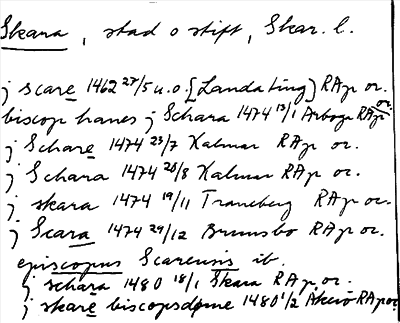 Skara, stad o stift, Skar. l.
j scare 1462 27/5 u.o. [Landating] RAp or.
biscop hanes j Schara 1474 13/1 Arboga RAp or.
j Schare 1474 23/7 Kalmar RAp or.
j Schara 1474 20/8 Kalmar RAp or.
j skara 1474 19/11 Traneberg RAp or.
j Scara 1474 29/12 Brunsbo RAp or.
episcopus Scarensis ib.
j schara 1480 18/1 Skara RAp or.
j skare biscopsdøme 1480 1/2 RAp or